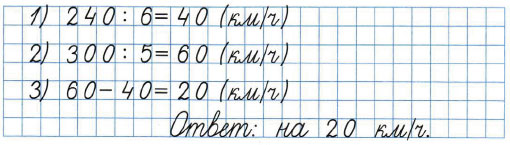 1) 240 : 6 = 40 (км/ч)
2) 300 : 5 = 60 (км/ч)
3) 60 – 40 = 20 (км/ч)
Ответ: на 20 км/ч.